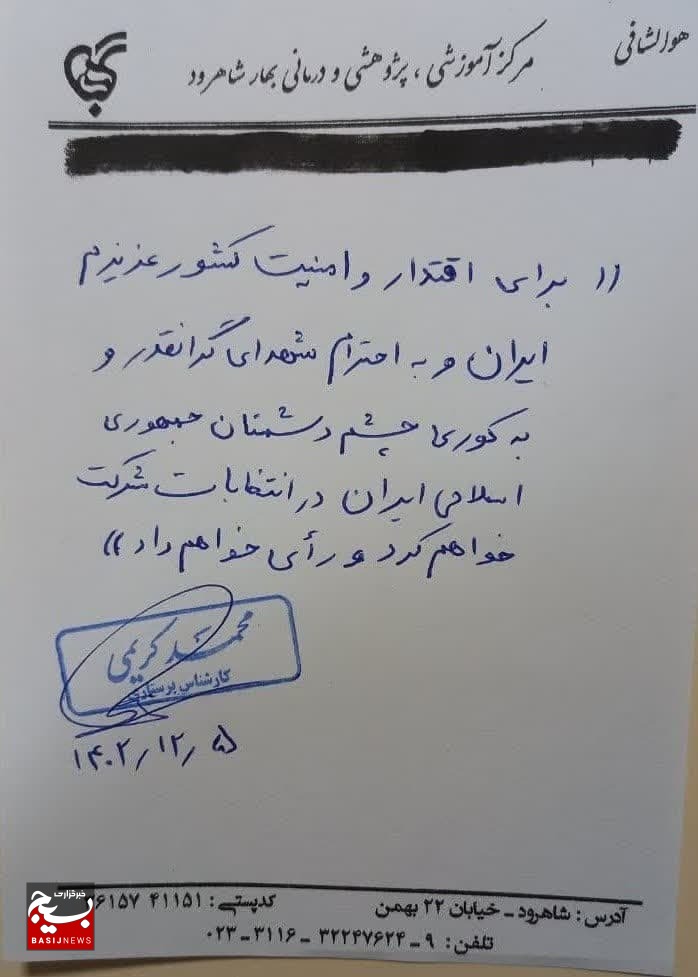 هوالشافی
مرکز آموزشی، پژوهشی و درمانی بهار شاهرود
(( برای اقتدار و امنیت کشور عزیزم
ایران و به احترام شهدای گرانقدر و
به کوری چشم دشمنان جمهوری
اسلامی ایران در انتخابات شرکت
خواهم کرد و رأی خواهم داد ))
محمد کریمی
کارشناس پرستاری
۱۴۰۲/۱۲/۵
آدرس : شاهرود ـ خیابان ۲۲ بهمن
کدپستی : ۴۱۱۵۱ ۶۱۵۷
تلفن: ۹ ـ ۳۲۲۴۷۶۲۴ ـ ۳۱۱۶ ـ ۰۲۳
خبرگزاری
بسیج
BASIJNEWS